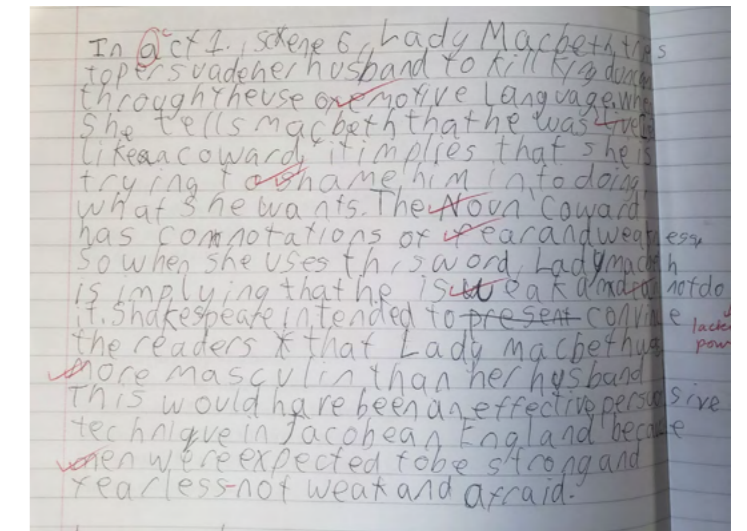 In act 1, sckene 6, Lady Macbeth tries
to persuade her husband to kill king duncan
through the use of emotive language. When
she tells macbeth that he was
like a coward, it implies that she is
trying to shame him in to doing
what she wants. The Noun 'coward'
has connotations of fear and weakness,
so when she uses this word, Lady macbeth
is implying that he is weak and can not do
it. Shakespeare intended to present convince
the readers that Lady macbeth was
more masculin than her husband
This would have been an effective persuasive
technique in Jacobean England because
men were expected to be strong and
fearless-not weak and afraid.
lacks
power